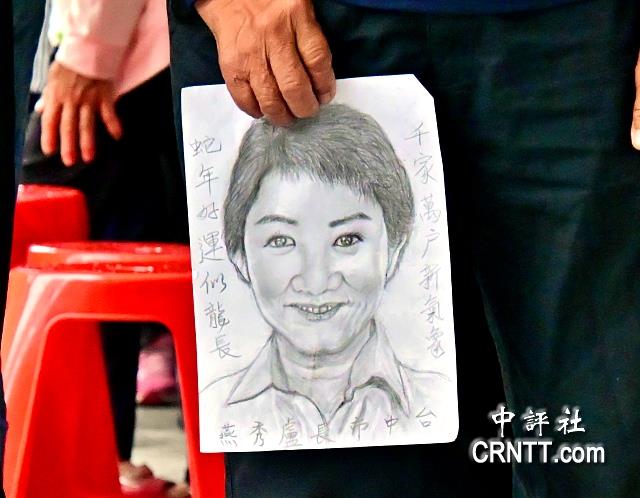 千家萬戶新氣象
蛇年好運似龍長
台中市長盧秀燕
中評社
CRNTT.com